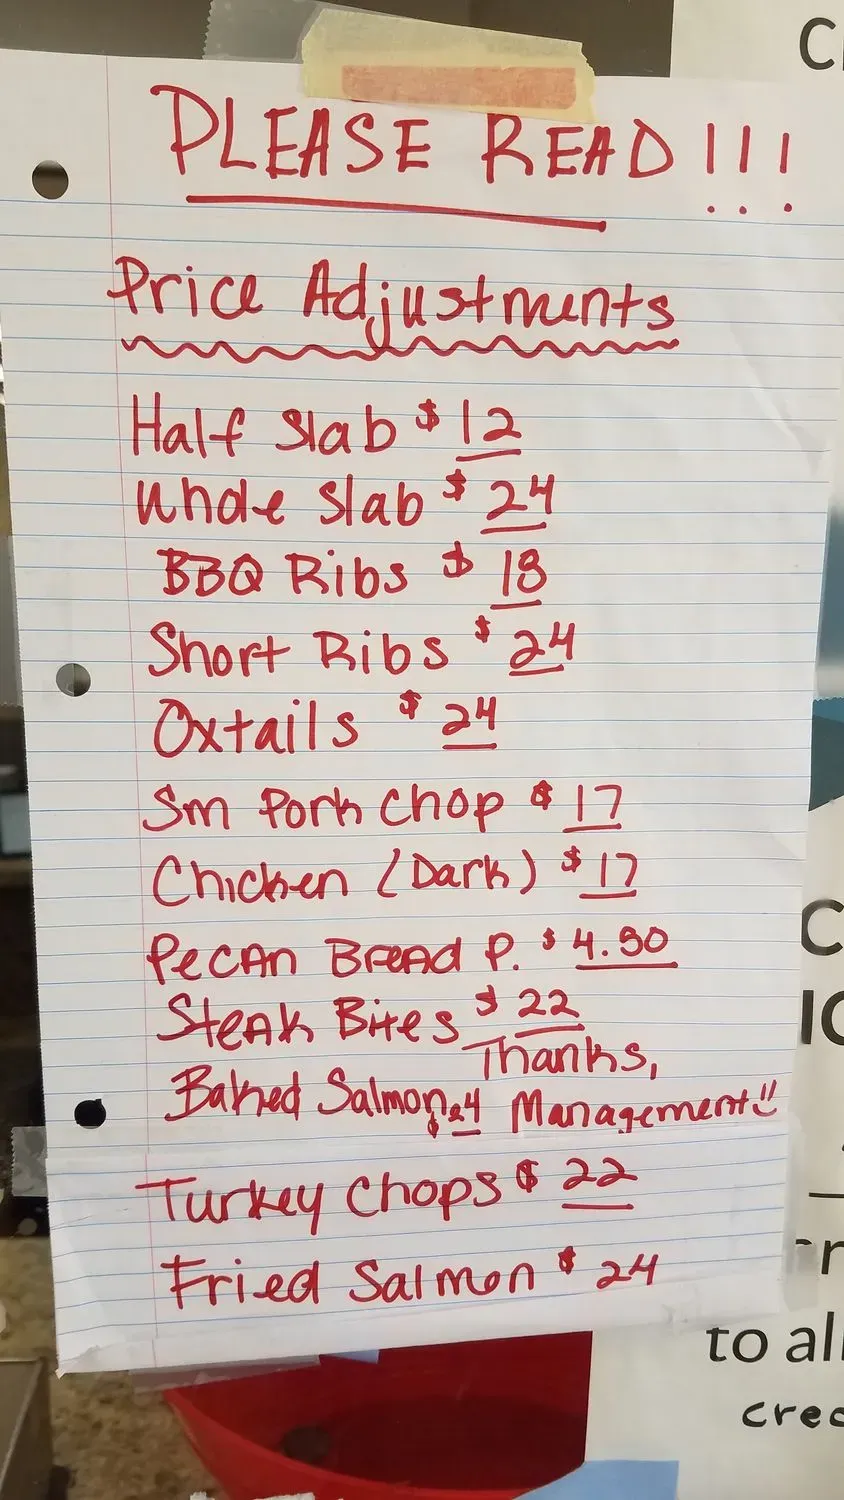 PLEASE READ!!!
Price Adjustments
Half Slab $12
Whole Slab $24
BBQ Ribs $18
Short Ribs $24
Oxtails $24
Sm Pork Chop $17
Chicken (Dark) $17
Pecan Bread P. $4.50
Steak Bites $22
Thanks,
Baked Salmon $24 Management!!
Turkey Chops $22
Fried Salmon $24
to all